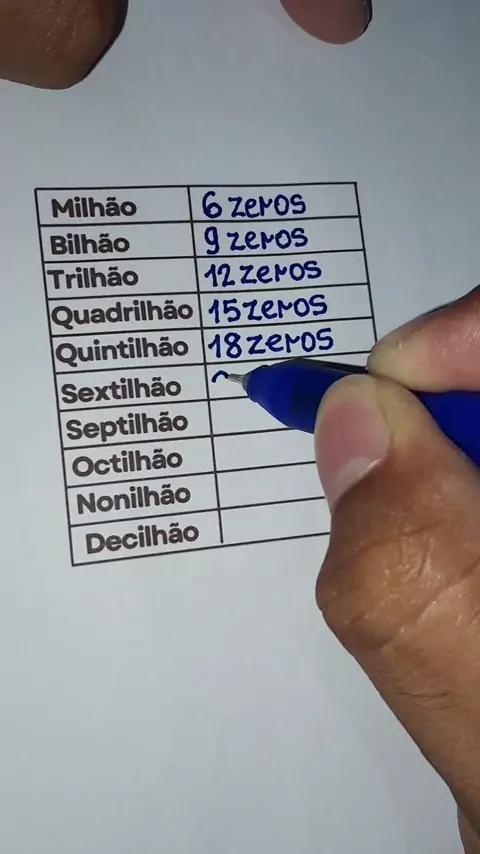 Milhão 6 zeros
Bilhão 9 zeros
Trilhão 12 zeros
Quadrilhão 15 zeros
Quintilhão 18 zeros
Sextilhão
Septilhão
Octilhão
Nonilhão
Decilhão